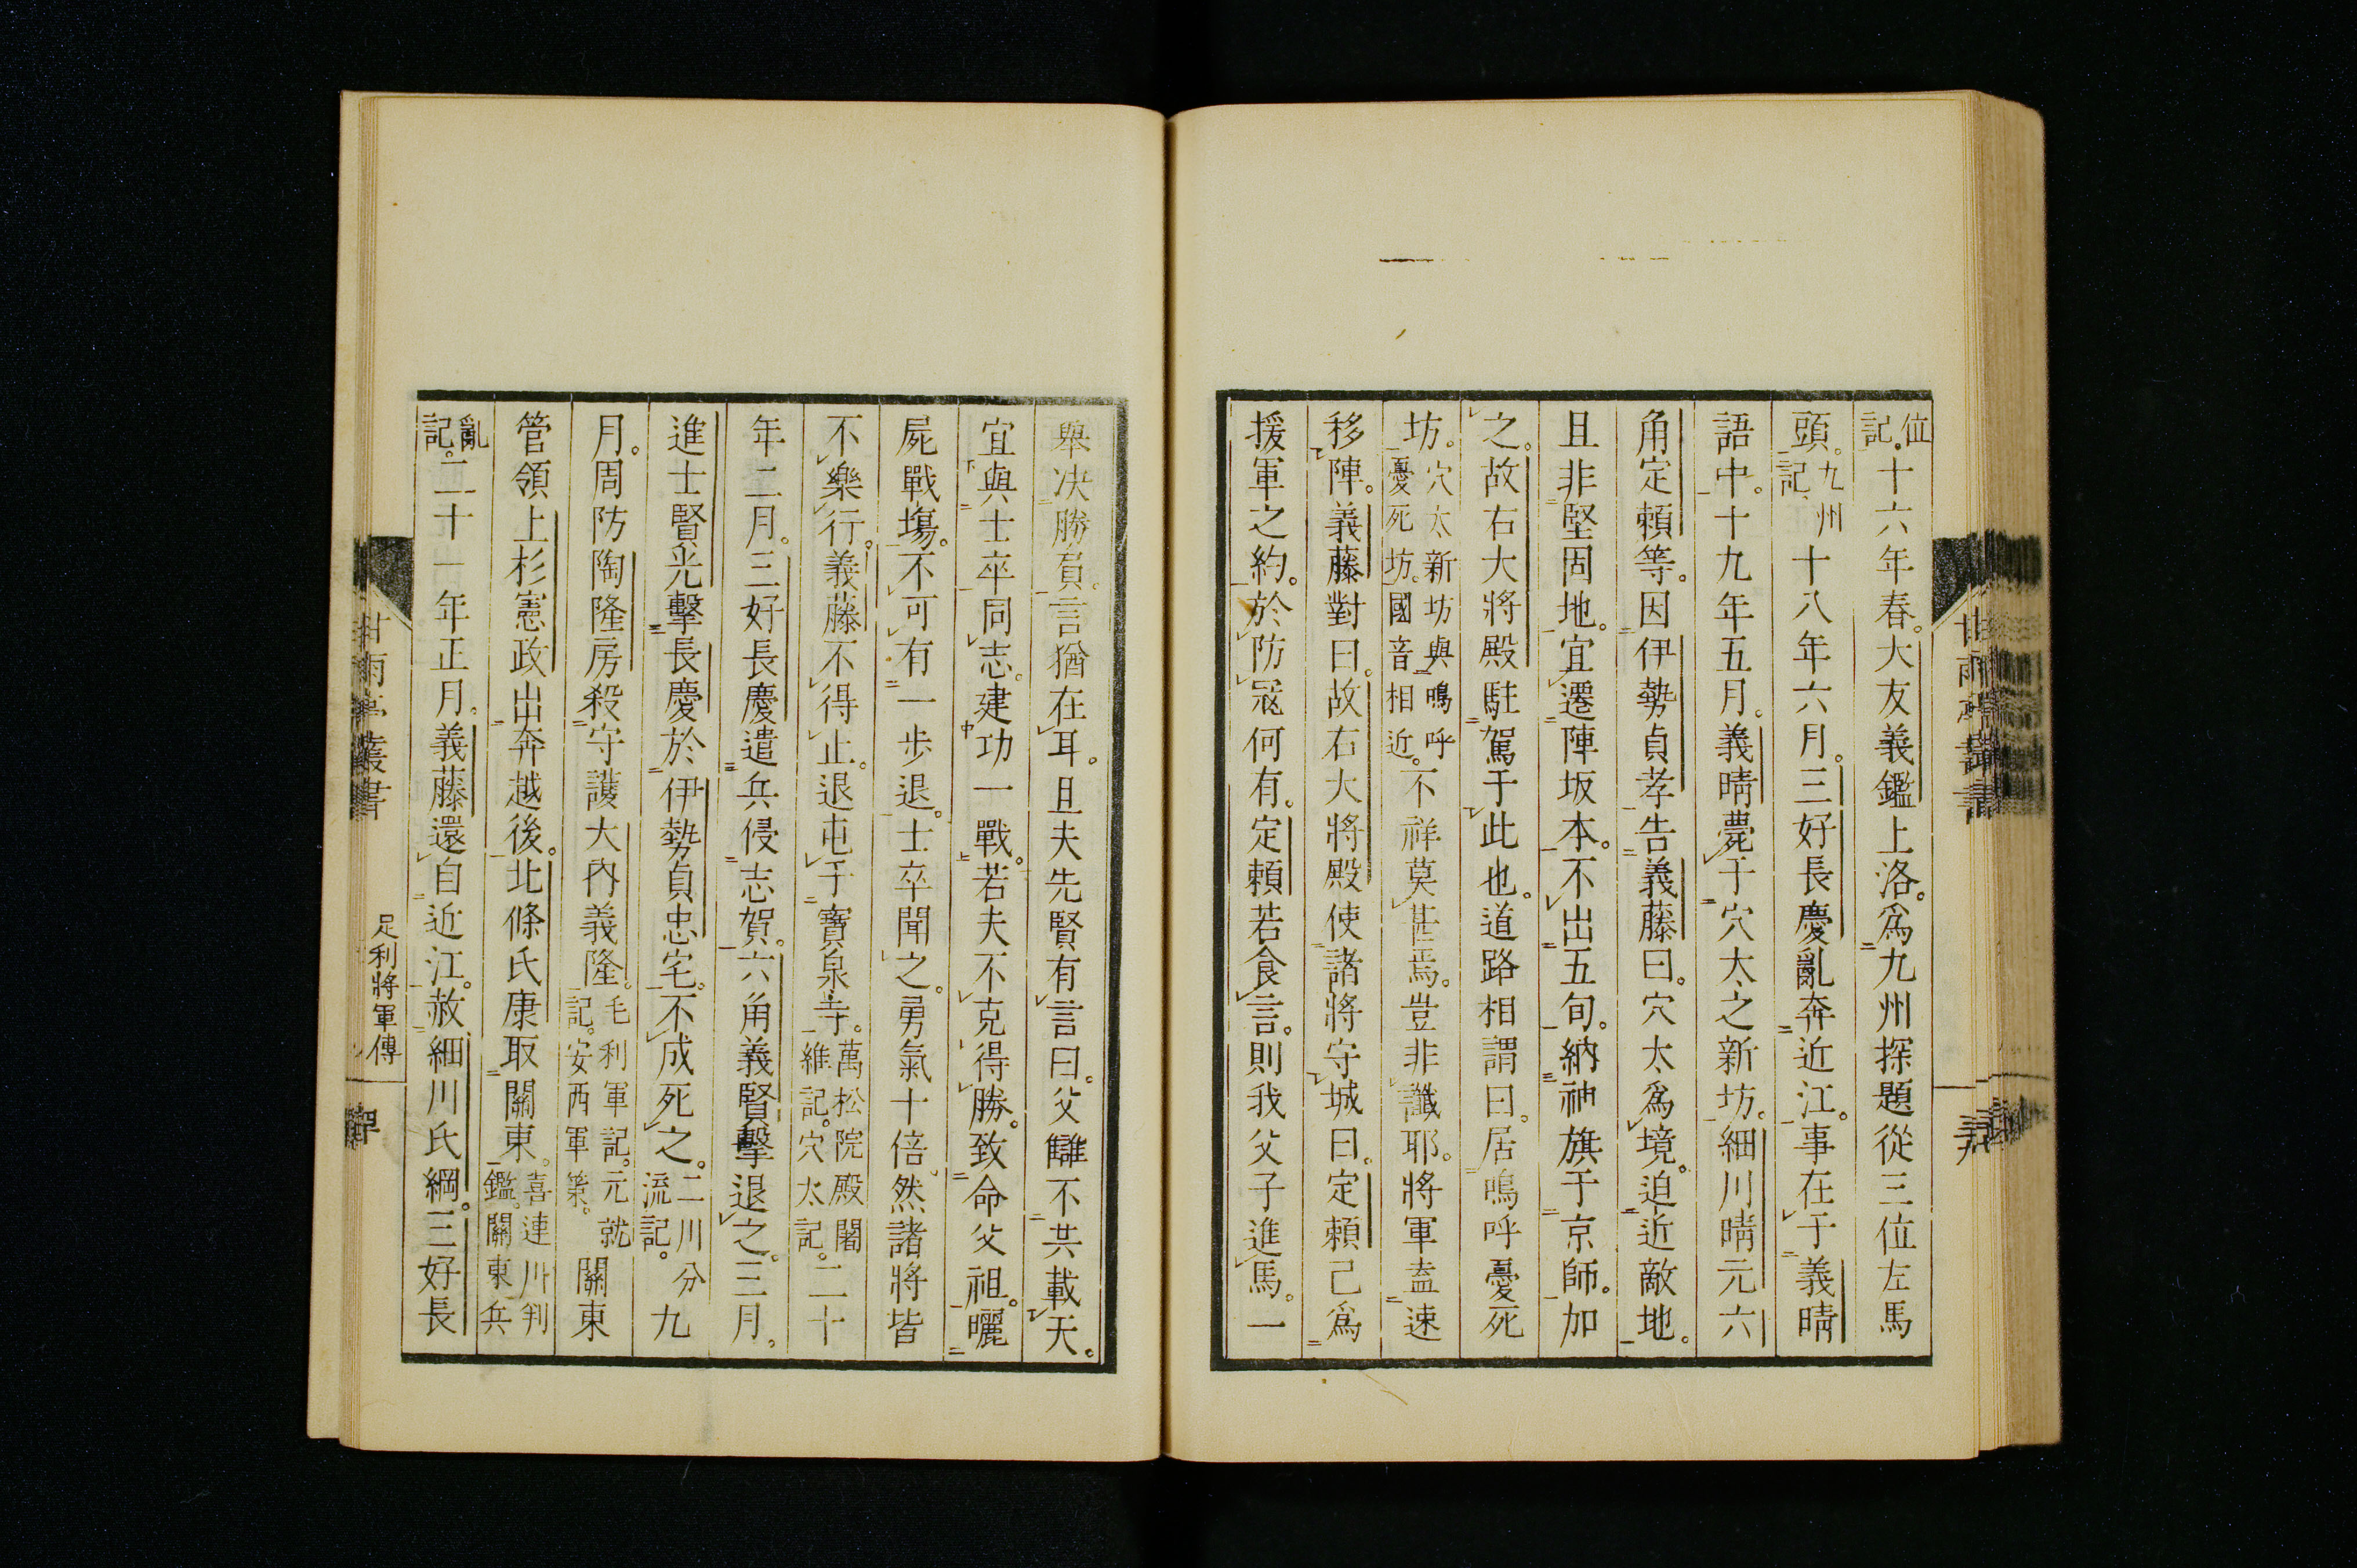 位記。十六年春。大友義鑑上洛。爲九州探題從三位左馬
頭。九州記。十八年六月。三好長慶亂奔近江。事在于義晴
語中。十九年五月。義晴薨于穴太之新坊。細川晴元六
角定頼等。因伊勢貞孝告義藤曰。穴太爲境。迫近敵地。
且非堅固地。宜遷陣坂本。不出五旬。納神旗于京師。加
之。故右大將殿駐駕于此也。道路相謂曰。居嗚呼憂死
坊。穴太新坊與嗚呼憂死坊。國音相近。不祥莫甚焉。豈非讖耶。將軍盍速
移陣。義藤對曰。故右大將殿使諸將守城曰。定頼己爲
援軍之約。於防寇何有。定頼若食言。則我父子進馬。一
擧决勝負。言猶在耳。且夫先賢有言曰。父讎不共載天。
宜與士卒同志。建功一戰。若夫不克得勝。致命父祖。曬
屍戰塲。不可有一歩退。士卒聞之。勇氣十倍。然諸將皆
不樂行。義藤不得止。退屯于寳泉寺。萬松院殿闍維記。穴太記。二十
年二月。三好長慶遣兵侵志賀。六角義賢擊退之。三月。
進士賢光擊長慶於伊勢貞忠宅。不成死之。二川分流記。九
月。周防陶隆房殺守護大内義隆。毛利軍記。元就記。安西軍策。關東
管領上杉憲政出奔越後。北條氏康取關東。喜連川判鑑。關東兵
亂記。二十一年正月。義藤還自近江。赦細川氏綱。三好長
甘雨亭叢書
足利將軍傳